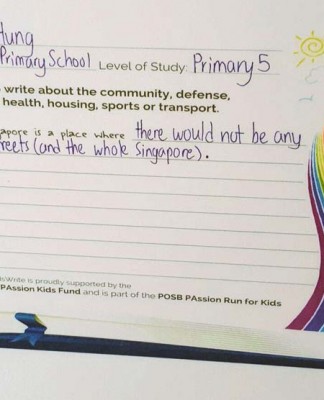 Hung
Primary School Level of Study: Primary 5
write about the community, defense,
health, housing, sports or transport.
apore is a place where there would not be any
reets (and the whole Singapore).
sWrite is proudly supported by the
PAssion Kids Fund and is part of the POSB PAssion Run for Kids